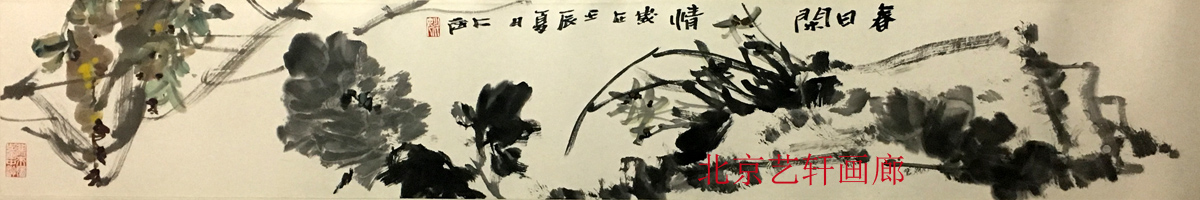 春日閑情 歲在壬辰夏日
北京艺轩画廊